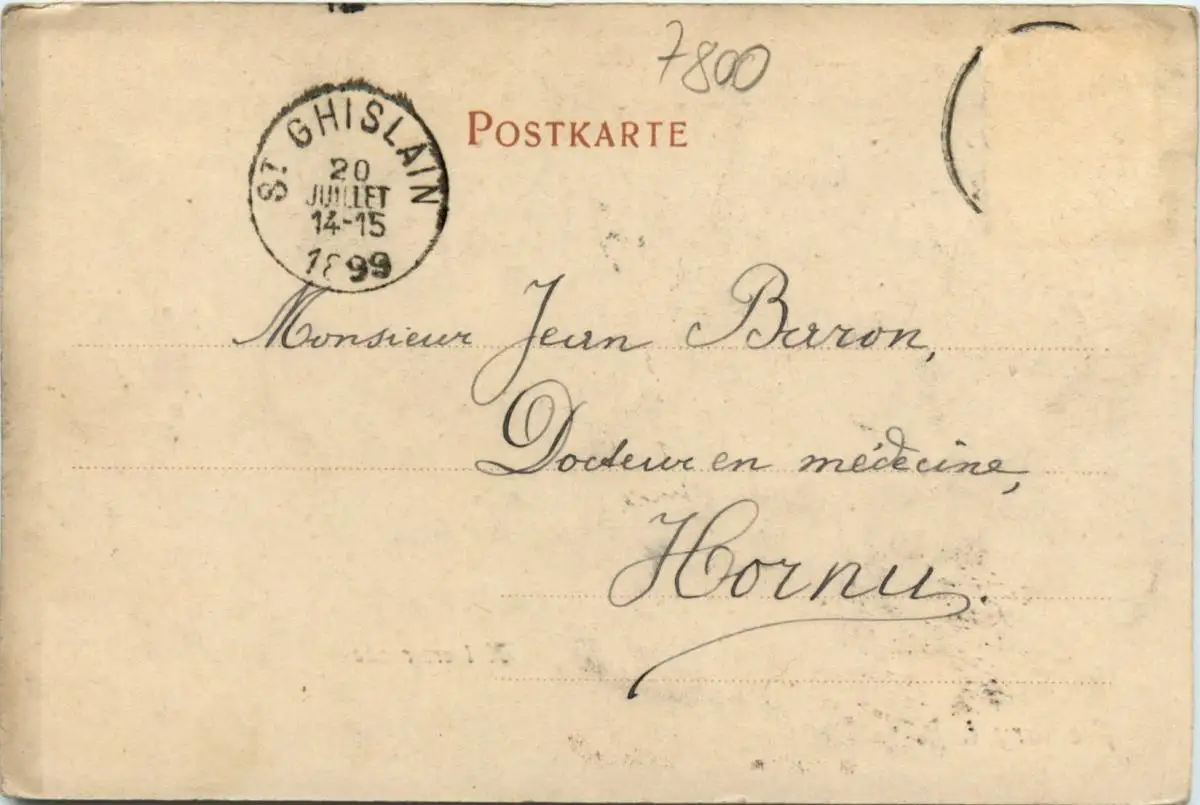 7800
POSTKARTE
ST GHISLAIN
20
JUILLET
14-15
1899
Monsieur Jean Baron,
Docteur en médecine,
Hornu.